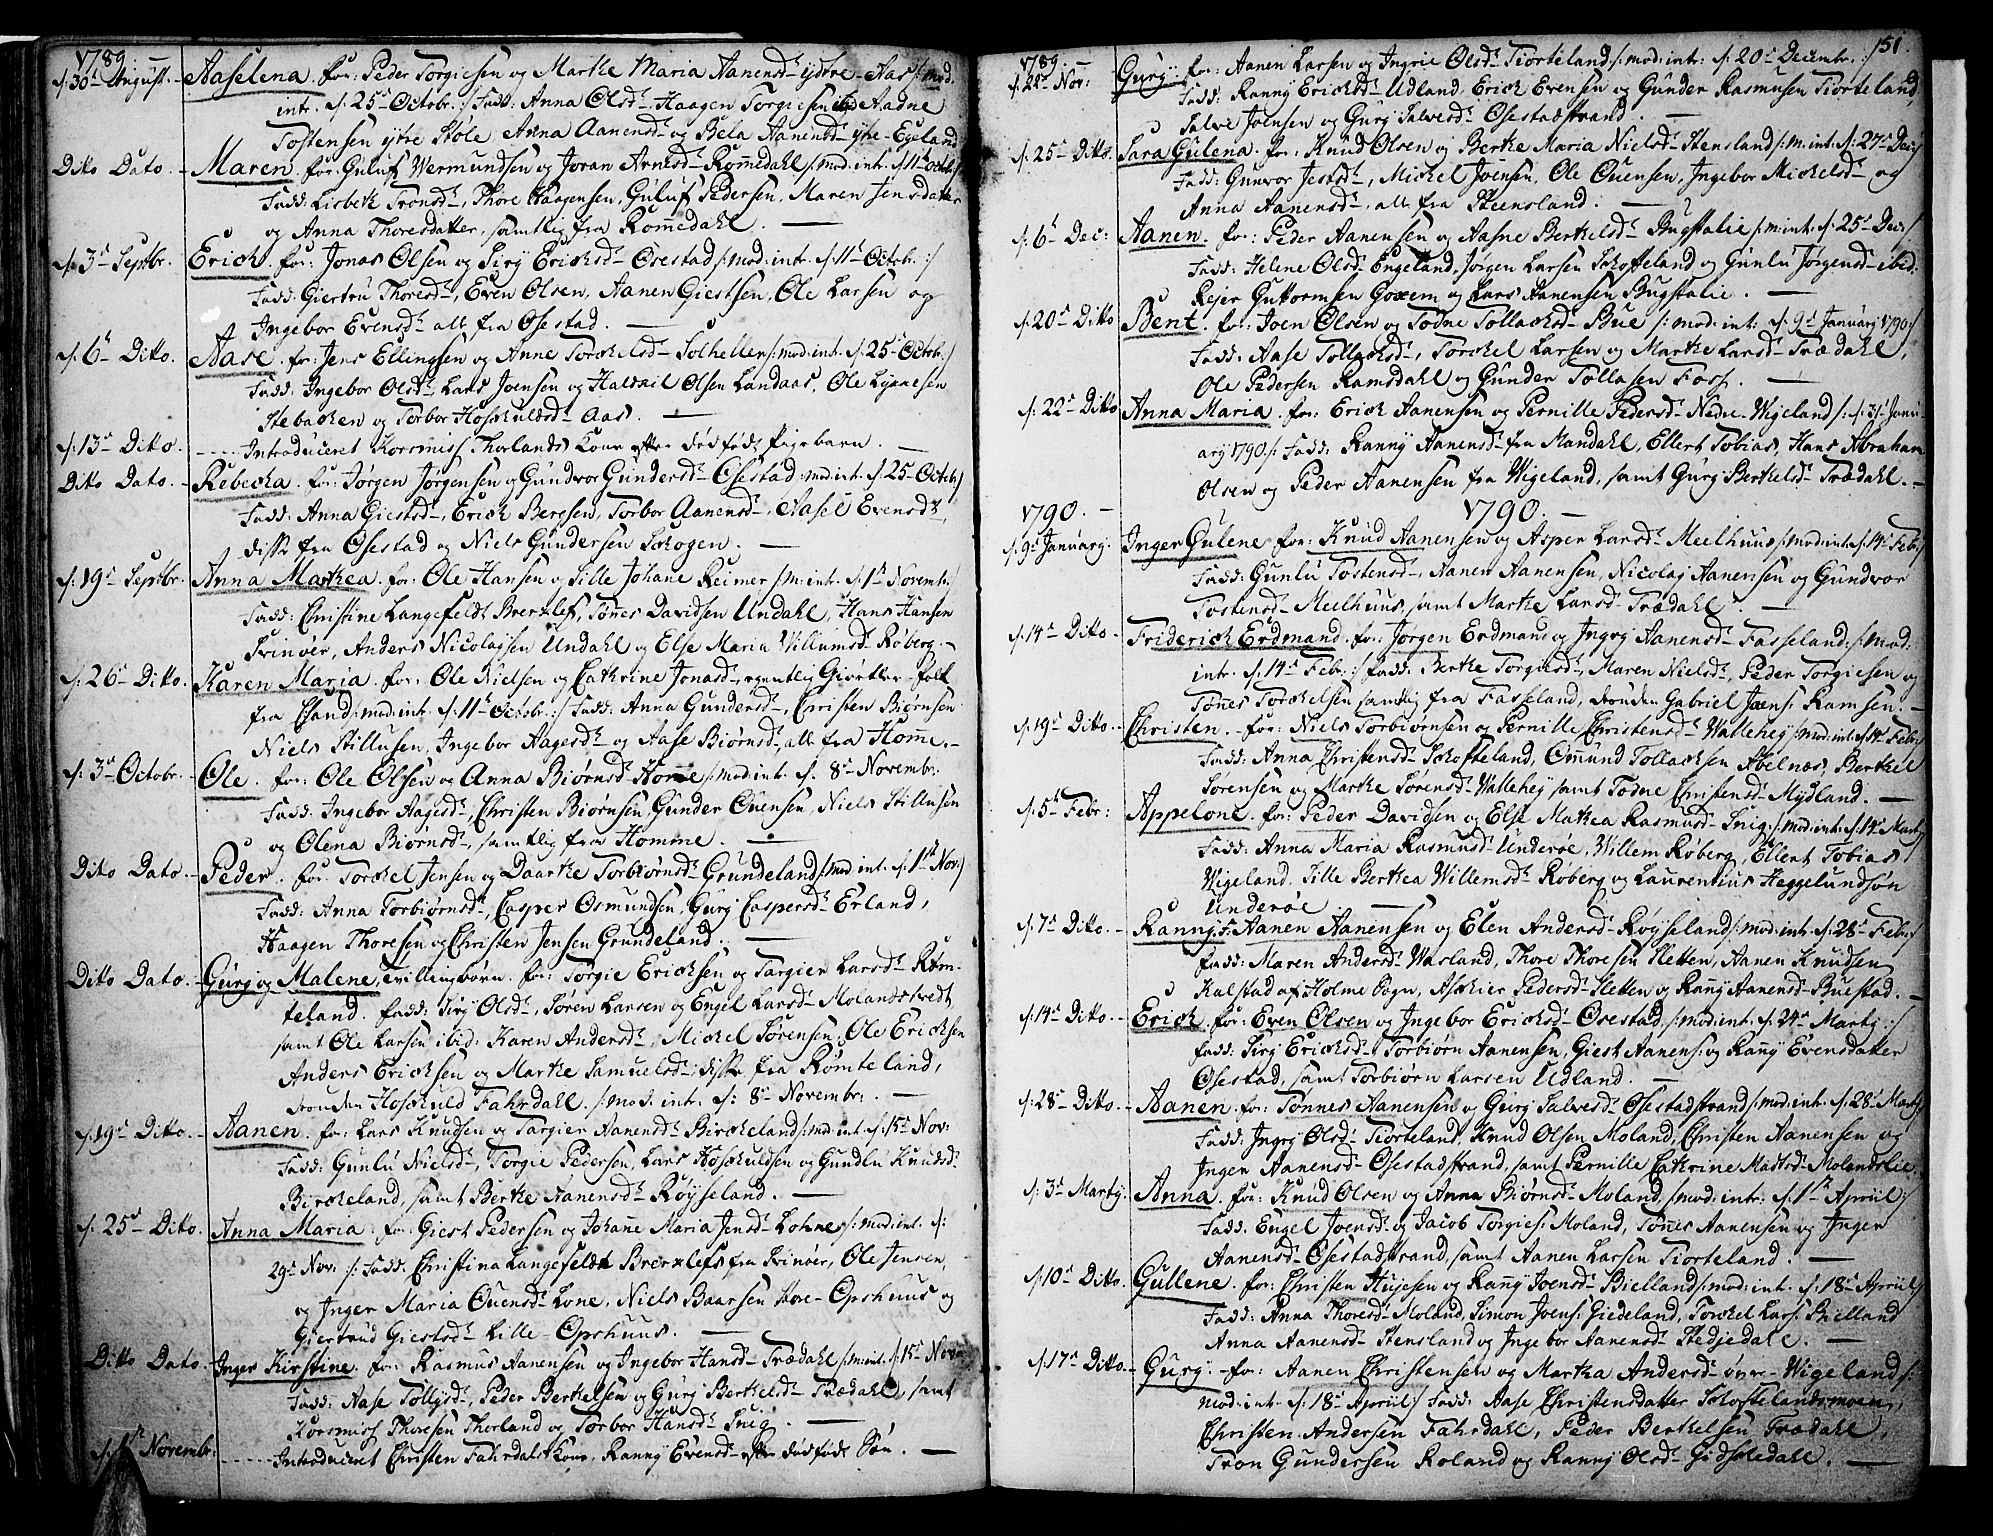 1789
s: 30te August. - Aaselena. for: Peder Torgiesen og Marthe Maria Aanensd. ystre-Aas /: mod.
intr. s: 25 Octobr. :/ Fadd: Anna Olsd. Haagen Torgiesen ibid Aadne
Tostensen ystre Støle, Anna Aanensd. og Bela Aanensd. ytre-Egeland
Dito Dato. - Maren. for: Guluf Wermundsen og Joran Arnesd. Rom̄edahl /: mod: int. s: 11 Octob:/
Fadd: Lisbeth Tronsd., Thore Haagensen, Guluf Pedersen, Maren Jensdatter
og Anna Thoresdatter, samtlig fra Rom̄edahl. —
s: 3d Septbr. Erich. for: Jonas Olsen og Sirÿ Erichsd. Osestad /: mod: intr. s: 11 Octobr. :/
Fadd: Giertru Thoresd., Even Olsen, Aanen Giestsen, Ole Larsen og
Ingebor Evensd. all fra Osestad. —
s: 6t Ditto. Aase. for: Jens Ellingsen og Anne Torkelsd. Solhellen /: mod: int. s: 25 Octob. :/
Fadd: Ingebor Olsd. Lars Joensen og Haldail Olsen Landaas, Ole
Stebachen og Torbor Hoskuldsd. Aas. —
s: 13d Ditto. .... Introduceret Kormmis Thorlands Kone efter dødfødt Pigebarn. —
Dito Dato. - Rebecka. for: Jørgen Jørgensen og Gundvor Gundersd. Osestad mod: int. s: 25 Octob:/
Fadd: Anna Giestsd., Erich Bersen, Torbor Aanensd., Aasel Evensd.,
disse fra Osestad og Niels Gundersen Skogen. —
s: 19 Septbr. Anna Marthea. for: Ole Hansen og Sille Johane Reimer /: m: intr. s: 1t Novemb:/
Fadd: Christine Langefeldt Brerklef, Tønes Davidsen Undahl, Hans Hansen
Svinøer, Anders Nicolaisen Undahl og Else Maria Willumsd. Røberg. -
s: 26 Ditto. Karen Maria. for: Ole Nielsen og Cathrine Jonasd. egentlig Giørtler-folk
fra /: mod: int. s: 11 Octobr. :/ Fadd: Anna Gundersd., Christen Biørnsen
Niels Stillusen, Ingebor Aagesd. og Aase Biørnsd. all fra Hom̄e. -
s: 3d Octobr. - Ole. for: Ole Olsen og Anna Biørnsd. Hom̄e /: mod: int. s: 8 Novembr:
Fadd: Ingebor Aagesd., Christen Biørnsen, Gunder Ovensen, Niels Stillusen
og Olena Biørnsd., samtlig fra Homme. —
Dito Dato. - Peder. for: Torkel Jensen og Daarthe Torbiørnsd. Grundeland /: mod int. s: 1t Nov:/
Fadd: Anna Torbiørnsd., Casper Osmundsen, Gurÿ Caspersd. Erland,
Haagen Thoresen og Christen Jensen Grundeland. —
Ditto Dato. Gurÿ og Malene, tvillingbørn. for: Torgie Erichsen og Targier Larsd. Røm-
teland. Fadd: Sirÿ Olsd., Søren Larsen og Engel Larsd. Molandstvedt
samt Ole Larsen ibid: Karen Andersd., Michel Sørensen, Ole Erichsen
Anders Erichsen og Marthe Samuelsd., disse fra Rømteland,
desuden Hoskuld Fahrdahl. /: mod: int. s: 8 Novembr: —
s: 19 Ditto. - Aanen. for: Lars Knudsen og Targier Aanensd. Birkeland /: mod: int. s: 15 Nov:
Fadd: Gunlu Nielsd., Torgie Pedersen, Lars Hoskuldsen og Gundlu Knudsd.
Birkeland, samt Berthe Aanensd. Røÿseland. —
s: 25 Ditto. Anna Maria. for: Giest Pedersen og Johan̄e Maria Jensd. Lohne /: mod: int. s:
29 Nov: :/ Fadd: Christina Langefeldt Brerklef fra Svinøer, Ole Jensen,
og Inger Maria Ovensd. Lone, Niels Baarsen Store-Opshuus og
Giertrud Giestsd. Lille-Opshuus. —
Ditto Dato. Inger Kirstine. for: Rasmus Aanensen og Ingebor Hansd. Trædahl /: m: int. s: 15 Nov:
Fadd: Aase Tollgsd., Peder Berthelsen og Gurÿ Berthelsd. Trædahl, samt
Kormmis Thoresen Thorland og Torbor Hansd. Snig. —
s: 1t Novembr: .... Introduceret Christen Fahrdals Kone, Rannÿ Evensd. efter dødfødt Søn. —
151.
1789.
s: 22 Nov: Gurÿ. for: Aanen Larsen og Ingrie Olsd. Tiorteland /: mod: intr: s: 20 Decembr. :/
Fadd: Rannÿ Erichsd. Udland, Erich Evensen og Gunder Rasmusen Tiorteland,
Salve Joensen og Gurÿ Salvesd. Osestadstrand. —
s: 25 Ditto. Sara Gulena. for: Knud Olsen og Berthe Maria Nielsd. Stensland /: m: int. s: 27 Dec:/
Fadd: Gunvor Jestsd., Michel Joensen, Ole Ovensen, Ingebor Michelsd. og
Anna Aanensd., all fra Steensland. —
s: 6t Dec: Aanen. for: Peder Aanensen og Aasne Berthelsd. Bugstalie /: m: int: s: 25 Dec:/
Fadd: Helene Olsd. Engeland, Jørgen Larsen Skofteland og Gunlu Jørgensd. ibid:
Rejer Guttormsen Goxem og Lars Aanensen Bugstalie. —
s: 20 Ditto Bent. for: Joen Olsen og Todne Tollachsd. Bue /: mod: int: s: 9 Januarÿ 1790:/
Fadd: Aase Tollachsd., Torchel Larsen og Marthe Larsd. Trædahl,
Ole Pedersen Ramsdahl og Gunder Tollasen Foss. —
s: 22 Ditto Anna Maria. for: Erich Aanensen og Pernille Pedersd. Nedre-Wigeland /: s: 31 Janu-
arÿ 1790:/ Fadd: Rannÿ Aanensd. fra Mandahl, Ellert Tobias, Hans Abraham
Olsen og Peder Aanensen fra Wigeland, samt Gurÿ Berthelsd. Trædahl. -
1790. — 1790. —
s: 9 Januarÿ. Inger Gulene for: Knud Aanensen og Asper Larsd. Meelhuus /: mod: int. s: 14 Feb:/
Fadd: Gunlu Tostensd., Aanen Aanensen, Nicolaj Aanensen og Gundvor
Tostensd. Meelhuus, samt Marthe Larsd. Trædahl. —
s: 14 Ditto. - Friderich Erdmand. for: Jørgen Erdmand og Ingrÿ Aanensd. Fasseland. /: mod:
int. s: 14 Febr. :/ Fadd: Berthe Torgiesd., Maren Nielsd., Peder Torgiesen og
Tønes Torkelsen samtlig fra Fasseland, desuden Gabriel Joens: Ramsen. -
s: 19 Ditto. - Christen. for: Niels Torbiørnsen og Pernille Christensd. Wallehej /: mod: int: s: 14 Feb:/
Fadd: Anna Christensd. Skofteland, Om̄und Tollachsen Abelnæs, Berthel
Sørensen og Marthe Sørensd. Wallehej samt Todne Christensd. Mydland. —
s: 5t Febr: Appelone. for: Peder Davidsen og Else Mathea Rasmusd. Snig. /: mod: int: s: 14 Martÿ
Fadd: Anna Maria Rasmusd. Underøe, Willem Røberg, Ellert Tobias
Wigeland, Sille Berthea Willemsd. Røberg og Laurentius Heggelundsøn
Underøe —
s: 7 Ditto. - Rannÿ. f: Aanen Aanensen og Elen Andersd. Røÿseland /: mod: int. s: 28 Feb:/
Fadd: Maren Andersd. Wasland, Thore Thoresen Sletten, Aanen Knudsen
Kalstad af Holme Sogn, Askier Pedersd. Sletten og Ran̄ÿ Aanensd. Buestad. -
s: 14 Ditto. - Erich. for: Even Olsen og Ingebor Erichsd. Osestad, /: mod: int. s: 24 Martÿ :/
Fadd: Sirÿ Erichsd. Torbiørn Aanensen, Giest Aanens: og Ran̄ÿ Evensdatter
Osestad, samt Torbiørn Larsen Udland. —
s: 28 Ditto. - Aanen. for: Tønnes Aanensen og Gurÿ Salvesd. Osestadstrand /: mod: int. s: 28 Martÿ
Fadd: Ingrÿ Olsd. Tiorteland, Knud Olsen Moland, Christen Aanensen og
Inger Aanensd. Osestadstrand, samt Pernille Cathrine Madsd. Molandslie.
s: 3 Martÿ. Anna. for: Knud Olsen og Anna Biørnsd. Moland, /: mod: intr: s: 1t Apriil :/
Fadd: Engel Joensd. og Jacob Torgies: Moland, Tønes Aanensen og Inger
Aanensd. Osestadstrand, samt Aanen Larsen Tiorteland. —
s: 10 Ditto. Gullene. for: Christen Hujesen og Ran̄ÿ Joensd. Bielland /: mod: int. s: 18 Apriil:/
Fadd: Anna Thoresd. Moland, Simon Joens: Giedeland, Torkel Lars: Bielland
Anna Aanensd. Stensland og Ingebor Aanensd. Stedjedahl. —
s: 17 Ditto. - Gurÿ. - for: Aanen Christensen og Martha Andersd. øvre-Wigeland /:
mod: int. s: 18 Apriil:/ Fadd: Aase Christensdatter Skoftelandsmoen,
Christen Andersen Fahrdahl, Peder Berthelsen Trædahl,
Tron Gundersen Roland og Rannÿ Olsd. Gidskedahl. —